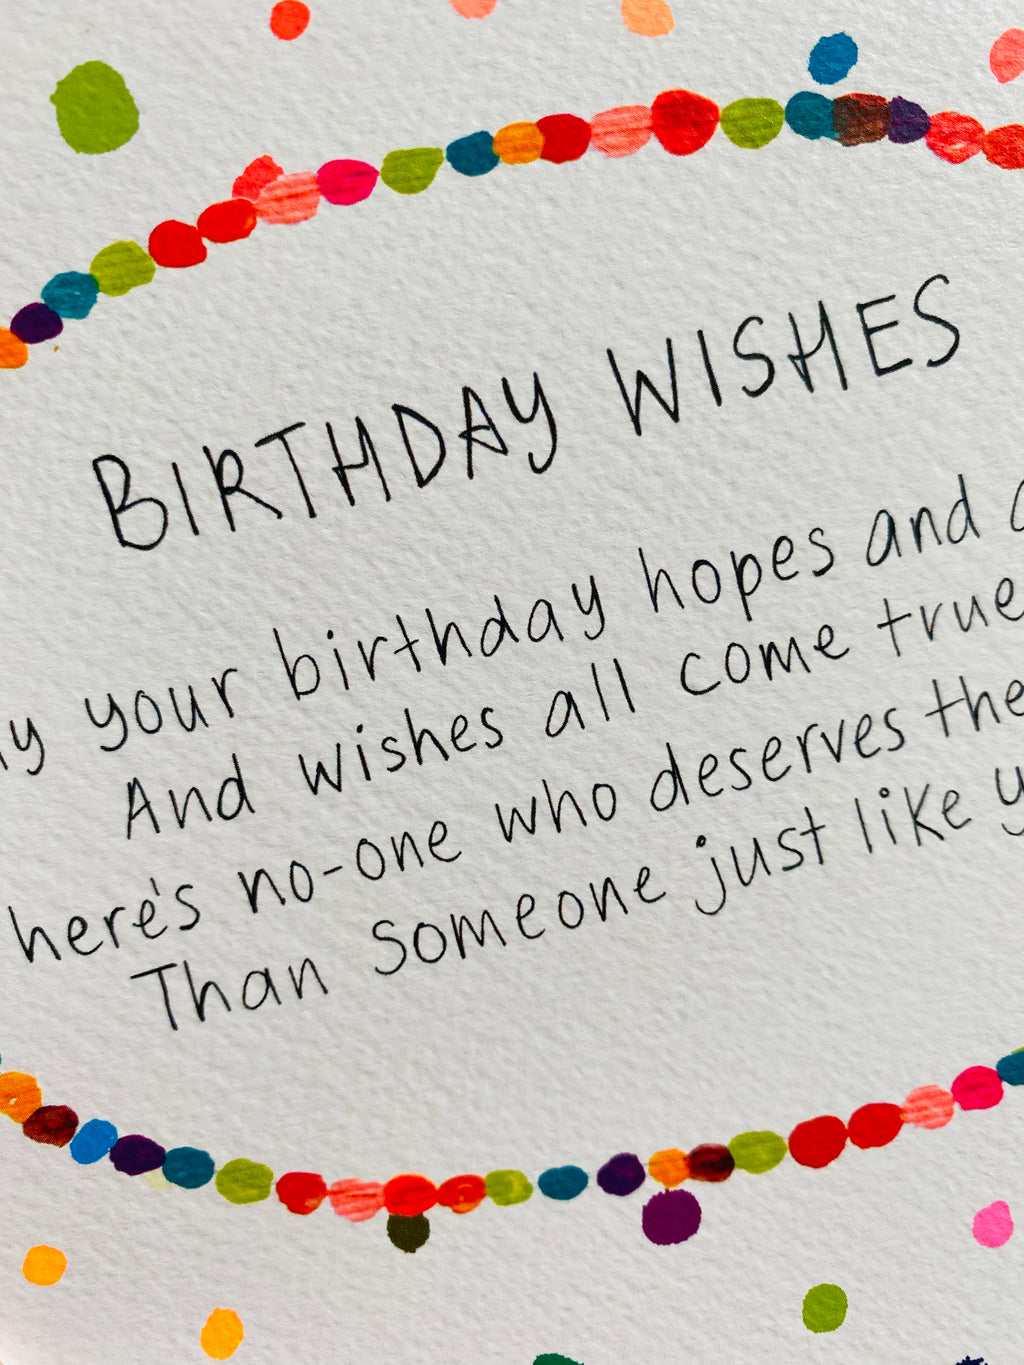 BIRTHDAY WISHES
your birthday hopes and
And wishes all come true
here's no-one who deserves the
Than someone just like